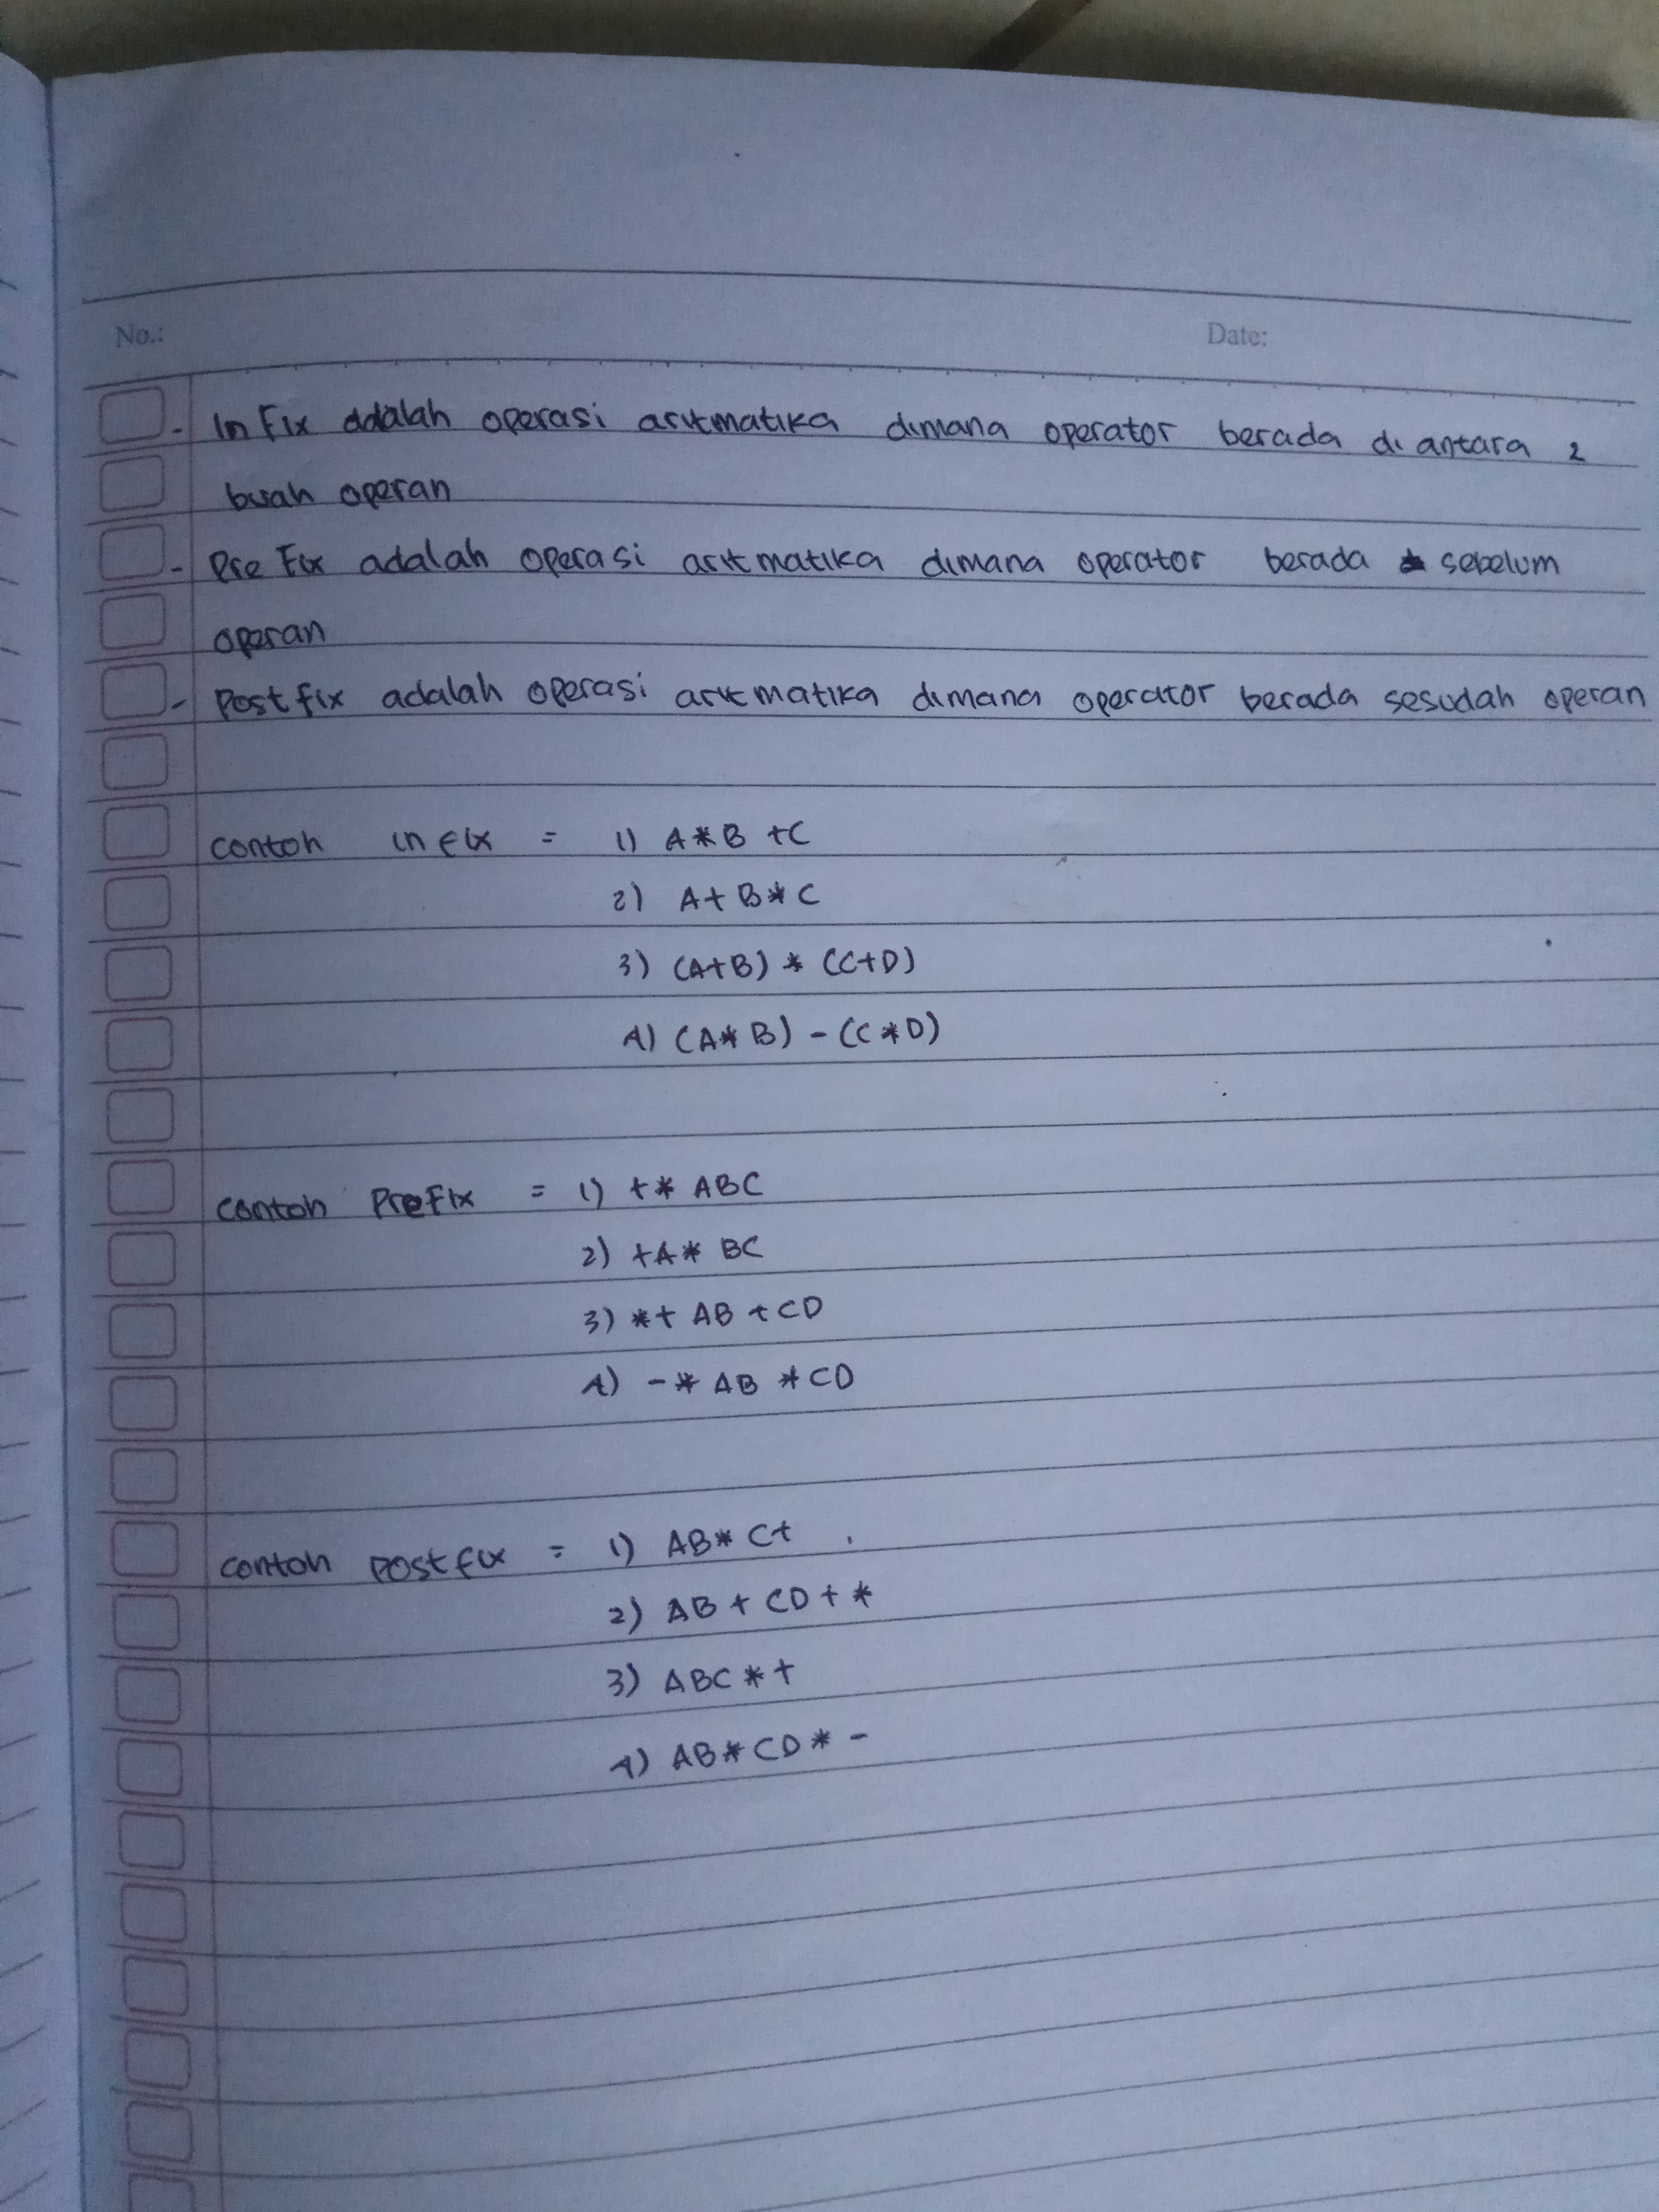 No.: Date:
- Infix adalah operasi aritmatika dimana operator berada di antara 2
buah operan
- Prefix adalah operasi aritmatika dimana operator berada sebelum
operan
- Postfix adalah operasi aritmatika dimana operator berada sesudah operan
contoh infix = 1) A*B+C
2) A+B*C
3) (A+B) * (C+D)
4) (A*B) - (C*D)
contoh Prefix = 1) +* ABC
2) +A* BC
3) *+ AB +CD
4) -* AB *CD
contoh postfix = 1) AB* C+
2) AB + CD + *
3) ABC *+
4) AB*CD* -